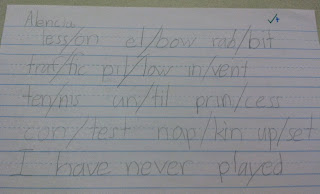 Alencia
less/on el/bow rab/bit
traf/fic pil/low in/vent
ten/nis un/til prin/cess
con/test nap/kin up/set
I have never played